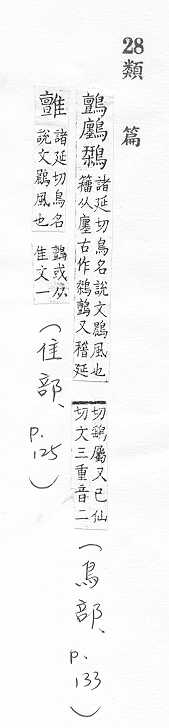 28
類篇
鸇
諸延切鳥名說文鷐風也
籀从廛古作鸇又稽延
切屬又已仙
切文三重音二
(鳥部、
p.133)
諸延切鳥名
說文鷐風也
鸇或从
隹文一
(隹部、
p.125)